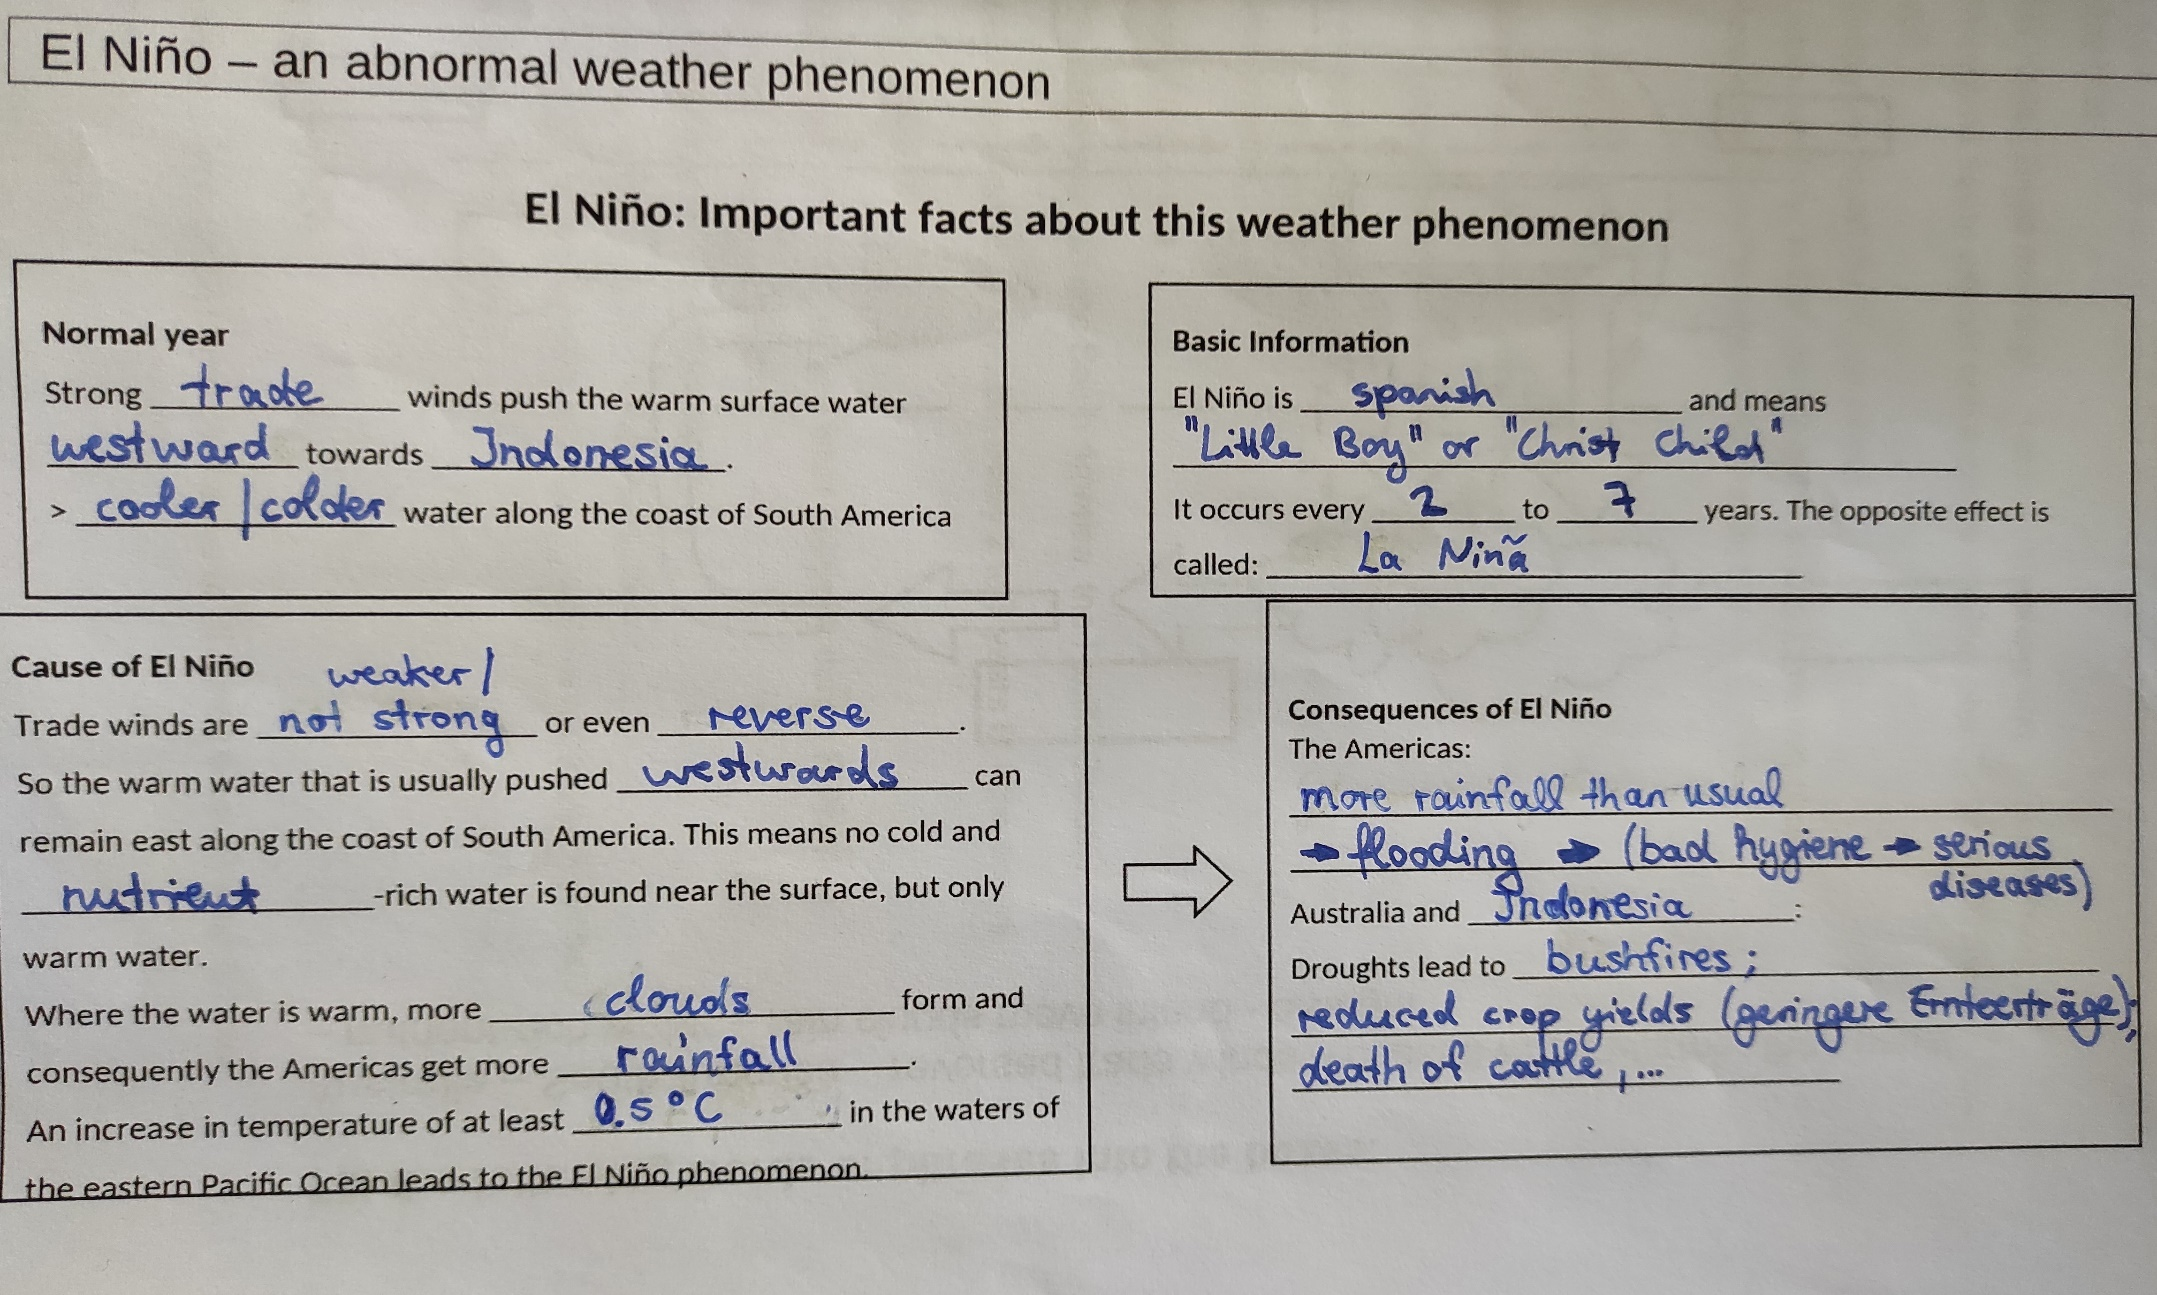 El Niño – an abnormal weather phenomenon
El Niño: Important facts about this weather phenomenon
Normal year
Strong trade winds push the warm surface water
westward towards Indonesia.
> cooler / colder water along the coast of South America
Basic Information
El Niño is spanish and means
"Little Boy" or "Christ Child"
It occurs every 2 to 7 years. The opposite effect is
called: La Niñã
Cause of El Niño
weaker /
Trade winds are not strong or even reverse.
So the warm water that is usually pushed westwards can
remain east along the coast of South America. This means no cold and
nutrient-rich water is found near the surface, but only
warm water.
Where the water is warm, more clouds form and
consequently the Americas get more rainfall.
An increase in temperature of at least 0.5 °C in the waters of
the eastern Pacific Ocean leads to the El Niño phenomenon.
Consequences of El Niño
The Americas:
more rainfall than usual
→ flooding → (bad hygiene → serious
diseases)
Australia and Indonesia:
Droughts lead to bushfires;
reduced crop yields (geringere Ernteerträge);
death of cattle, ...